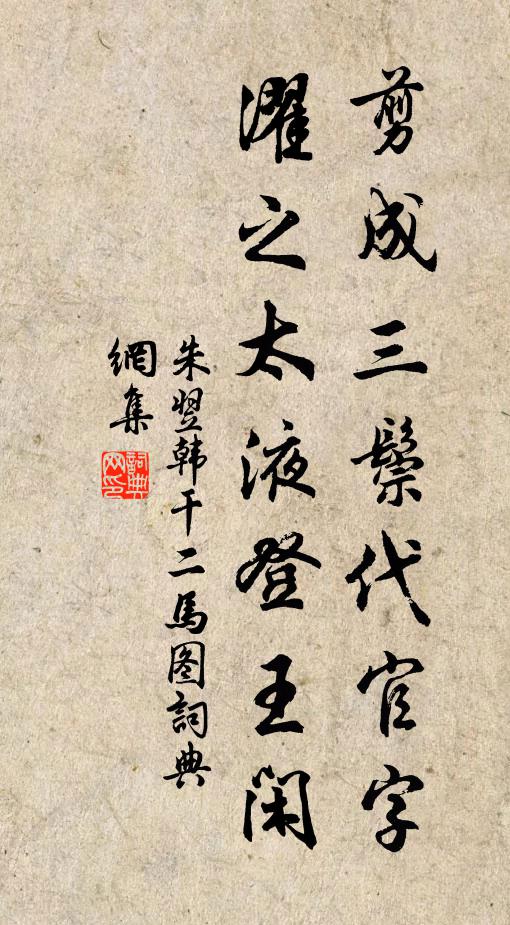 剪成三鬃代官字
濯之太液登王闲
朱翌韩干二马图詞典
網集
詞典
网印